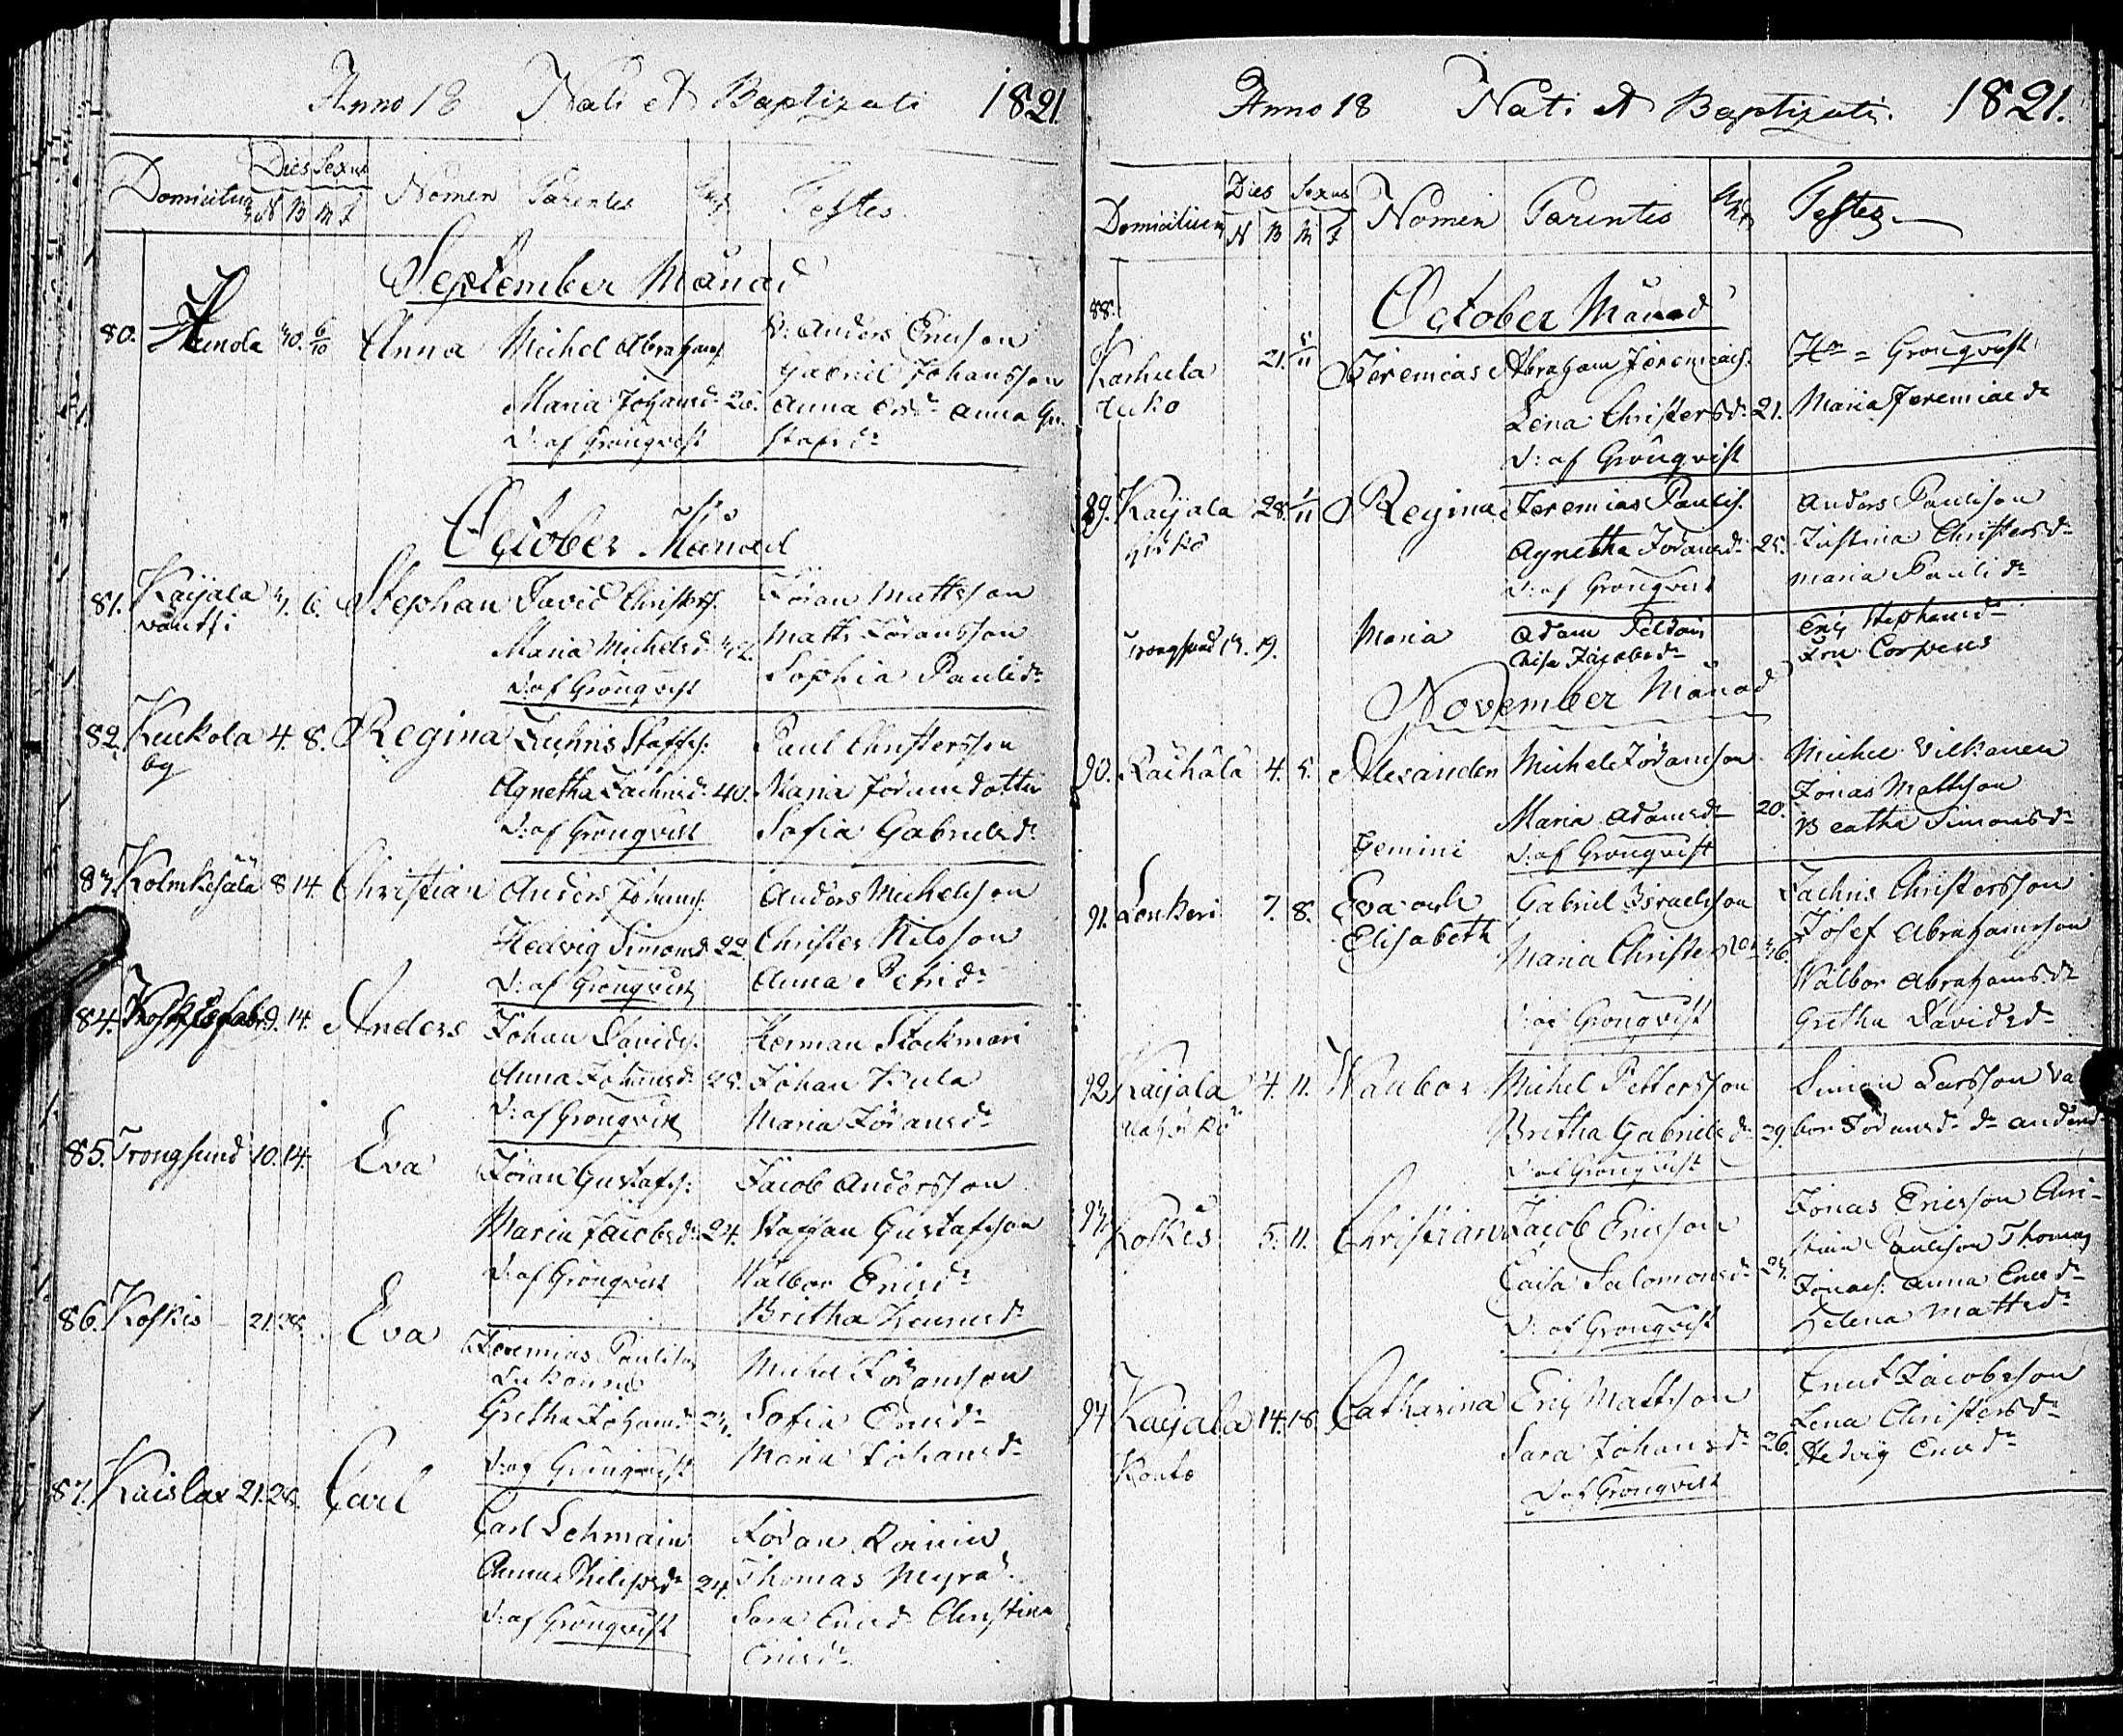 Anno 18 Nati et Baptizati 1821.
Domicilium Dies Sexus Nomen Parentes Testes
N B M F
September Månad
80. 30. 6/10 Anna Michel Abrahams.
Maria Johansd:r 26.
D: af Grönqvist
B: Anders Ericsson
Gabriel Johansson
Anna Ersd:r Anna Gu-
stafsd:r
October Månad
81. Kaijala 3. 6. Stephan David Christers.
Maria Michelsd: 32.
D: af Grönqvist
Jöran Mattsson
Matts Jöransson
Sophia Paulid:r
82. Kuckola 4. 8. Regina Zachris Staffs:
by
Agnetha Zachrisd: 40.
D: af Grönqvist
Paul Christersson
Maria Jöransdotter
Sofia Gabrielsd:r
83. Kolmkesälä 8 14. Christian Anders Johans.
Hedvig Simonsd: 22.
D: af Grönqvist
Anders Michelsson
Christer Nilsson
Anna Petrid:r
84. 9. 14. Anders Johan Davids.
Anna Johansd: 28.
D: af Grönqvist
Herman Stockman
Johan Kula
Maria Jöransd:r
85. Trongsund 10. 14. Eva Jöran Gustafs:
Maria Jacobsd: 24.
D: af Grönqvist
Jacob Andersson
Staffan Gustafsson
Walbor Ericsd:r
Bretha
86. Koskis 21. 28. Eva Jeremias Paulisson
Gretha Johansd: 23.
D: af Grönqvist
Michel Jöransson
Sofia Ericsd:r
Maria Johansd:r
87. Kaislax 21. 28. Carl
Carl Lehmain
Anna Philipsd:r 24.
D: af Grönqvist
Jöran
Thomas Myra
Sara Ericsd: Christina
Ericsd:r
Anno 18 Nati et Baptizati. 1821.
Domicilium Dies Sexus Nomen Parentes Testes
N B M F
October Månad
88.
Karhula 21. 5/11 Jeremias Abraham Jeremias.
Lena Christersd: 21.
D: af Grönqvist
H:r Grönqvist
Maria Jeremiaed:r
89. Kaijala 28. 1/11 Regina Jeremias Paulis.
Agnetha Jöransd: 25.
D: af Grönqvist
Anders Paulisson
Justina Christersd:r
Maria Paulid:r
Trongsund 13. 19. Maria Adam Peldan
Caisa Jacobsd:r
Eric Stephansd:r
Fru Corpens
November Månad
90. Räihälä 4. 5. Alexander Michel Jöransson
Maria Adamsd:r 20.
D: af Grönqvist
Michel Vilkanen
Jonas Mattsson
Beatha Simonsd:r
Gemini
91. Lenkeri 7. 8. Eva och
Elisabeth
Gabriel Israelsson
Maria Christersd:r 36.
D: af Grönqvist
Zachris Christersson
Josef Abrahamsson
Walbor Abrahamsd:r
Gretha Davidsd:r
92. Kaijala 4. 11. Waubor Michel Pettersson
Bretha Gabrielsd: 29.
D: af Grönqvist
Simon Larsson Va
bor Jöransd:
93. Koskis 5. 11. Christian Jacob Ericsson
Caisa Salomonsd: 23.
D: af Grönqvist
Jonas Ericsson Chri-
stian Paulisson Thomas
Jonas. Anna Ericsd:r
Helena Mattsd:r
94 Kaijala 14. 18. Catharina Eric Mattsson
Konto
Sara Johansd: 26.
D: af Grönqvist
Knut Jacobsson
Lena Christersd:r
Hedvig Ericsd:r